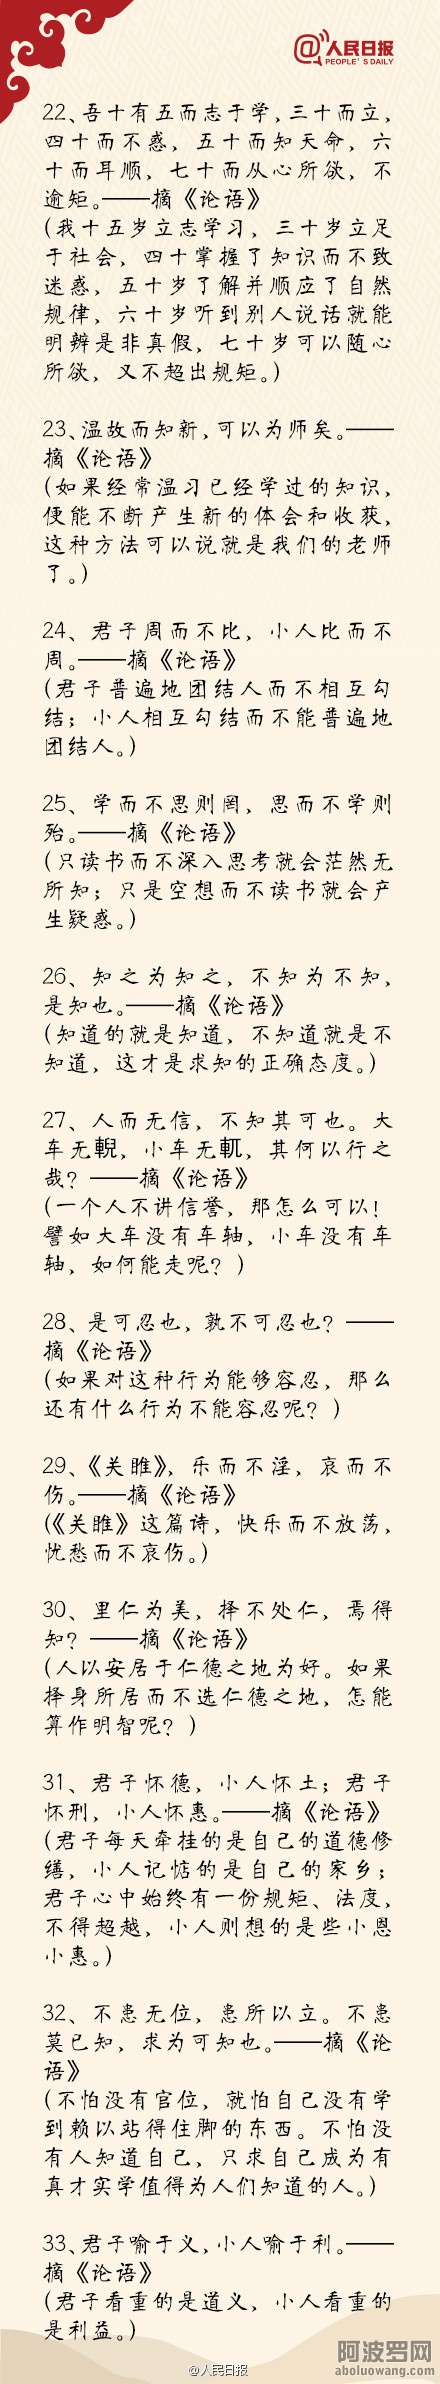 @人民日报
PEOPLE'S DAILY
22、吾十有五而志于学,三十而立,
四十而不惑，五十而知天命，六
十而耳顺，七十而从心所欲，不
逾矩。——摘《论语》
(我十五岁立志学习，三十岁立足
于社会，四十掌握了知识而不致
迷惑，五十岁了解并顺应了自然
规律，六十岁听到别人说话就能
明辨是非真假，七十岁可以随心
所欲，又不超出规矩。)
23、温故而知新,可以为师矣。——
摘《论语》
(如果经常温习已经学过的知识,
便能不断产生新的体会和收获,
这种方法可以说就是我们的老师
了。)
24、君子周而不比，小人比而不
周。——摘《论语》
(君子普遍地团结人而不相互勾
结；小人相互勾结而不能普遍地
团结人。)
25、学而不思则罔，思而不学则
殆。——摘《论语》
(只读书而不深入思考就会茫然无
所知；只是空想而不读书就会产
生疑惑。)
26、知之为知之，不知为不知,
是知也。——摘《论语》
(知道的就是知道，不知道就是不
知道，这才是求知的正确态度。)
27、人而无信，不知其可也。大
车无輗，小车无軏，其何以行之
哉？——摘《论语》
(一个人不讲信誉，那怎么可以！
譬如大车没有车轴，小车没有车
轴，如何能走呢？)
28、是可忍也，孰不可忍也？——
摘《论语》
(如果对这种行为能够容忍，那么
还有什么行为不能容忍呢？)
29、《关雎》，乐而不淫，哀而不
伤。——摘《论语》
(《关雎》这篇诗，快乐而不放荡,
忧愁而不哀伤。)
30、里仁为美，择不处仁，焉得
知？——摘《论语》
(人以安居于仁德之地为好。如果
择身所居而不选仁德之地，怎能
算作明智呢？)
31、君子怀德，小人怀土；君子
怀刑，小人怀惠。——摘《论语》
(君子每天牵挂的是自己的道德修
缮，小人记惦的是自己的家乡；
君子心中始终有一份规矩、法度,
不得超越，小人则想的是些小恩
小惠。)
32、不患无位，患所以立。不患
莫已知，求为可知也。——摘《论
语》
(不怕没有官位，就怕自己没有学
到赖以站得住脚的东西。不怕没
有人知道自己，只求自己成为有
真才实学值得为人们知道的人。)
33、君子喻于义,小人喻于利。——
摘《论语》
(君子看重的是道义，小人看重的
是利益。)
@人民日报
阿波罗网
aboluowang.com